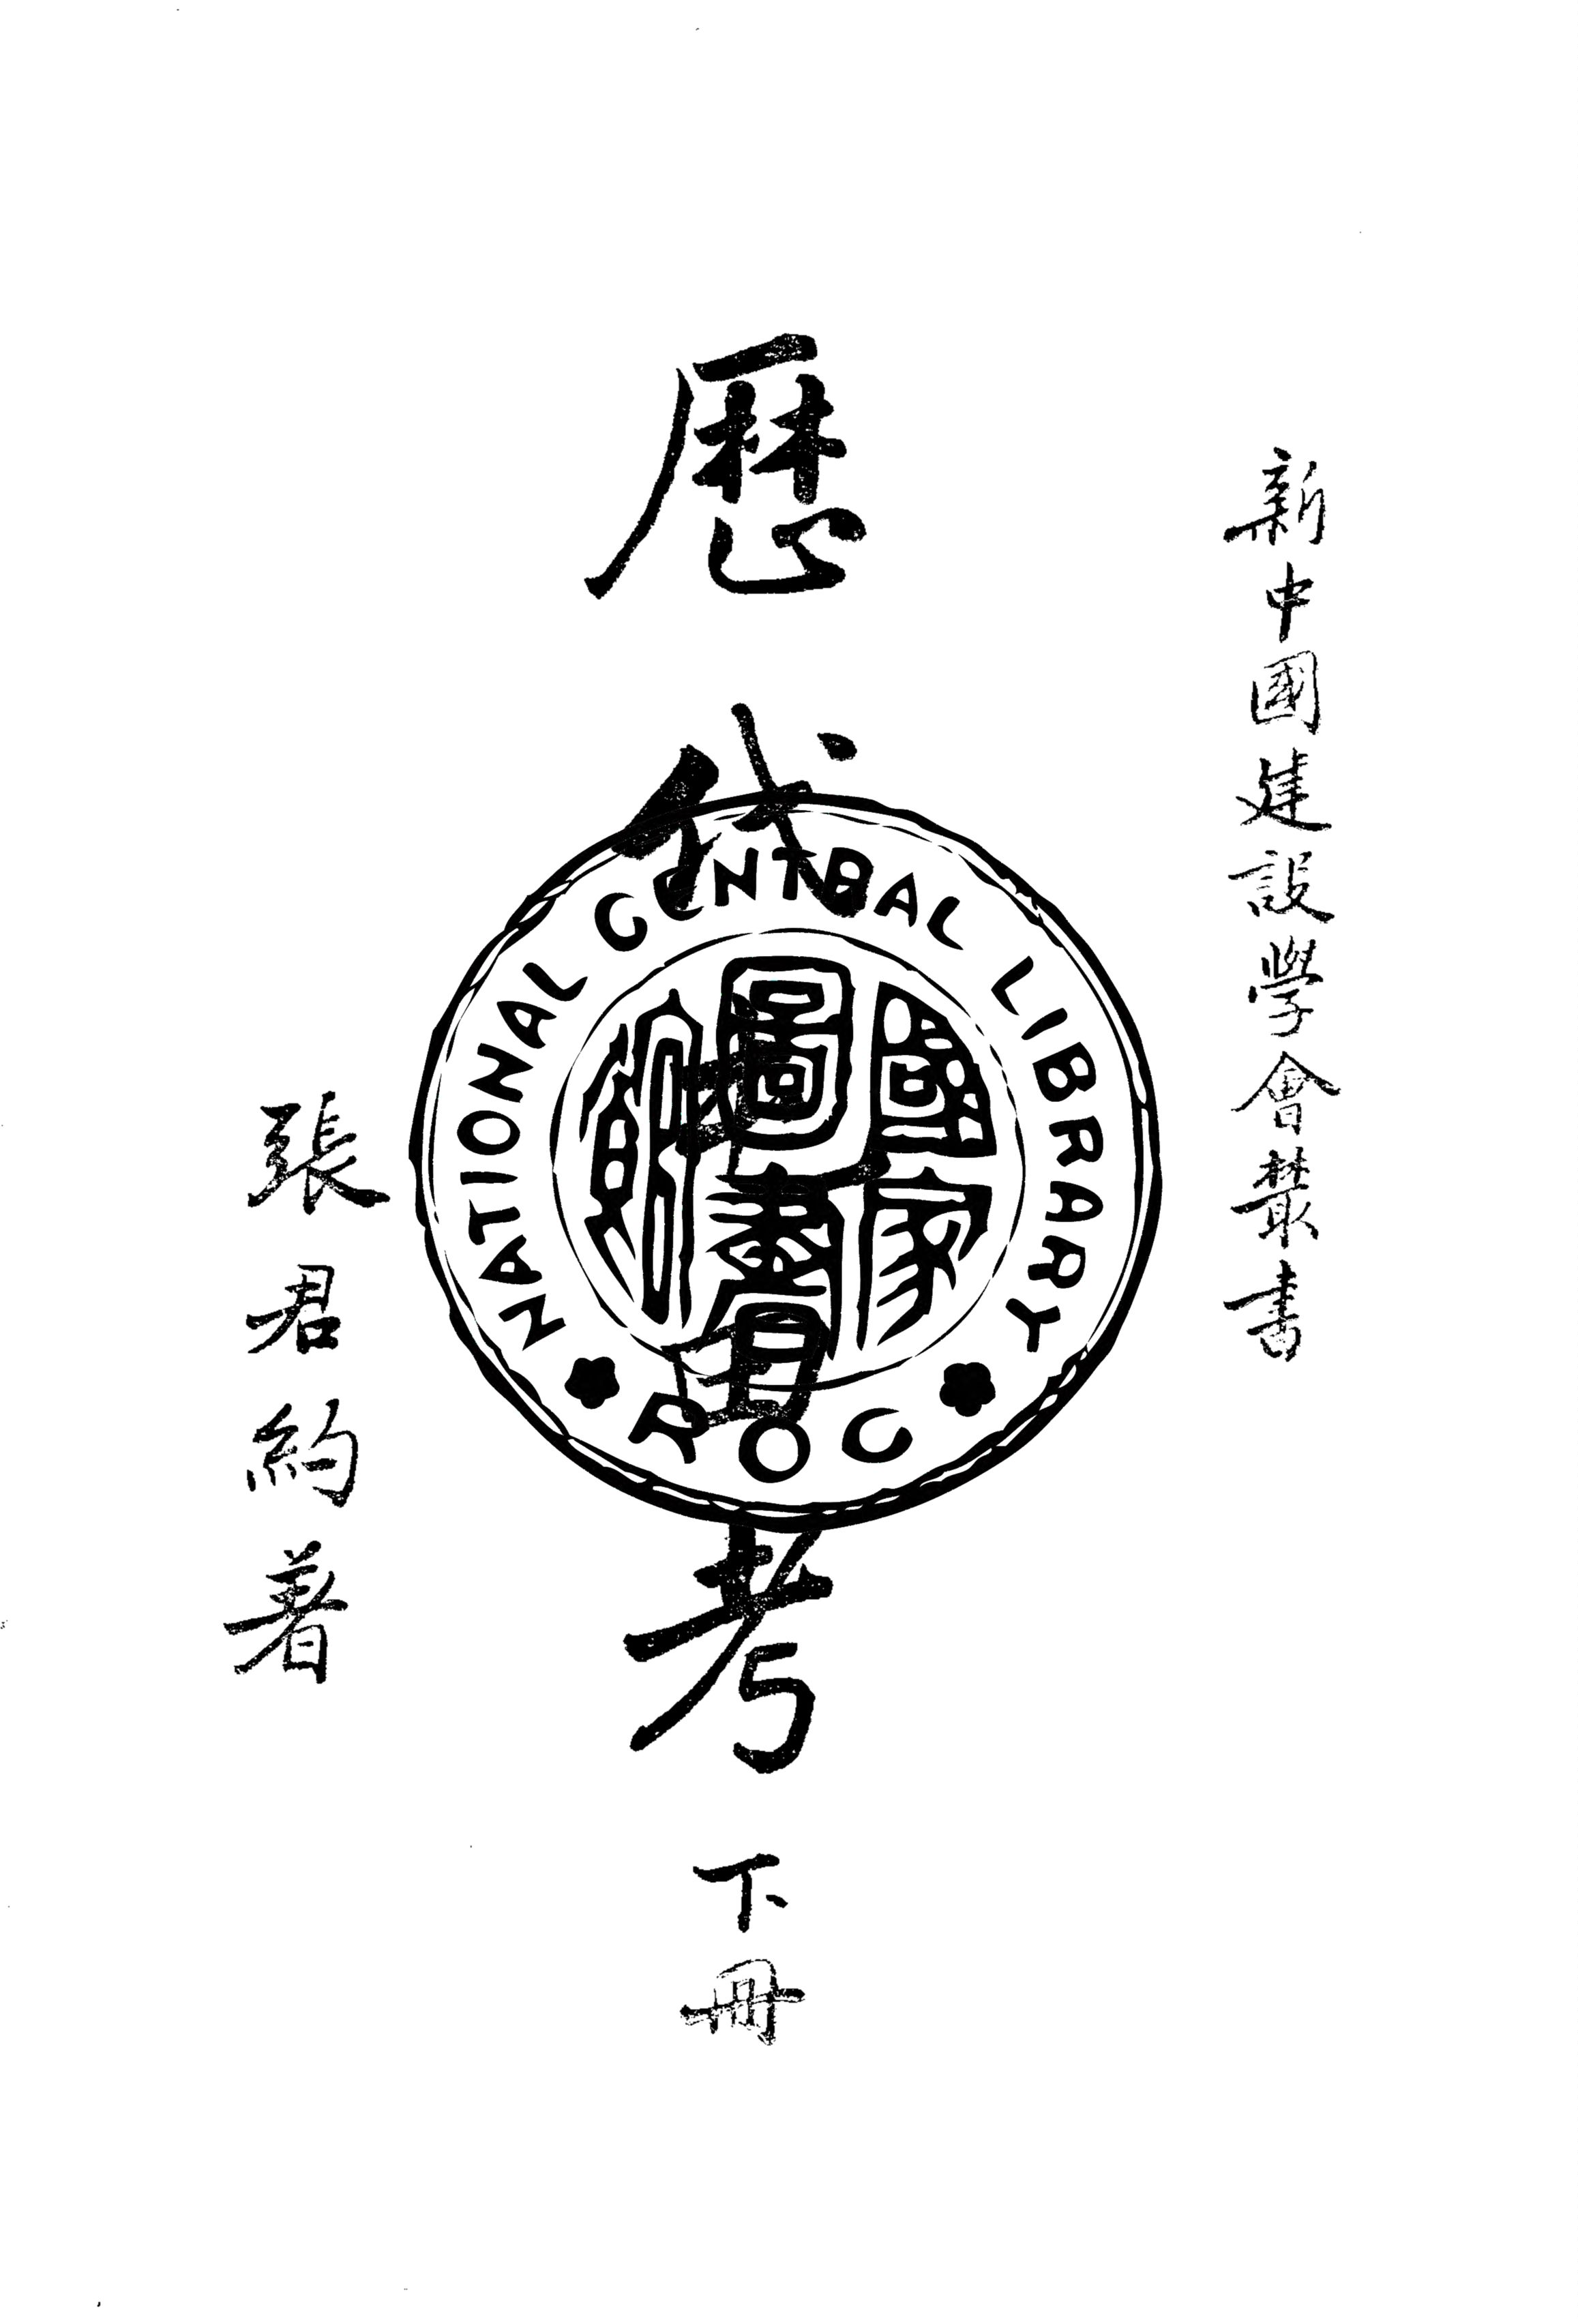 新中國建設學會叢書
歷代屯田考 下冊
張君約著
NATIONAL CENTRAL LIBRARY
ROC
國家
圖書
館